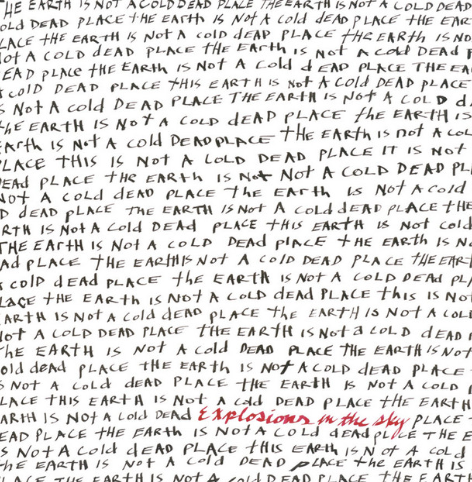 THE EARTH IS NOT A COLD DEAD PLACE THE EARTH IS NOT A COLD DEAD
OLD DEAD PLACE THE EARTH IS NOT A COLD DEAD PLACE THE EAR
LACE THE EARTH IS NOT A COLD DEAD PLACE THE EARTH IS NO
NOT A COLD DEAD PLACE THE EARTH IS NOT A COLD DEAD
EAD PLACE THE EARTH IS NOT A COLD DEAD PLACE THE EA
COLD DEAD PLACE THIS EARTH IS NOT A COLD DEAD PLACE
S NOT A COLD DEAD PLACE THE EARTH IS NOT A COLD D
THE EARTH IS NOT A COLD DEAD PLACE THE EARTH IS
EARTH IS NOT A COLD DEAD PLACE THE EARTH IS NOT A COL
LACE THIS IS NOT A COLD DEAD PLACE IT IS NOT
DEAD PLACE THE EARTH IS NOT NOT A COLD DEAD PL
NOT A COLD DEAD PLACE THE EARTH IS NOT A COLD
D DEAD PLACE THE EARTH IS NOT A COLD DEAD PLACE THE
RTH IS NOT A COLD DEAD PLACE THIS EARTH IS NOT COLD
THE EARTH IS NOT A COLD DEAD PLACE THE EARTH IS N
AD PLACE THE EARTH IS NOT A COLD DEAD PLACE THE EART
COLD DEAD PLACE THE EARTH IS NOT A COLD DEAD PL
LACE THE EARTH IS NOT A COLD DEAD PLACE THIS IS NO
ARTH IS NOT A COLD DEAD PLACE THE EARTH IS NOT A COL
NOT A COLD DEAD PLACE THE EARTH IS NOT A COLD DEAD
THE EARTH IS NOT A COLD DEAD PLACE THE EARTH IS NOT
OLD DEAD PLACE THE EARTH IS NOT A COLD DEAD PLACE
S NOT A COLD DEAD PLACE THE EARTH IS NOT A COLD
LACE THIS EARTH IS NOT A COLD DEAD PLACE THE EARTH
ARTH IS NOT A COLD DEAD Explosions in the sky PLACE
EAD PLACE THE EARTH IS NOT A COLD DEAD PLACE THE E
S NOT A COLD DEAD PLACE THIS EARTH IS NOT A COLD
THE EARTH IS NOT A COLD DEAD PLACE THE EARTH IS
LACE THE EARTH IS NOT A COLD DEAD PLACE THE EAR